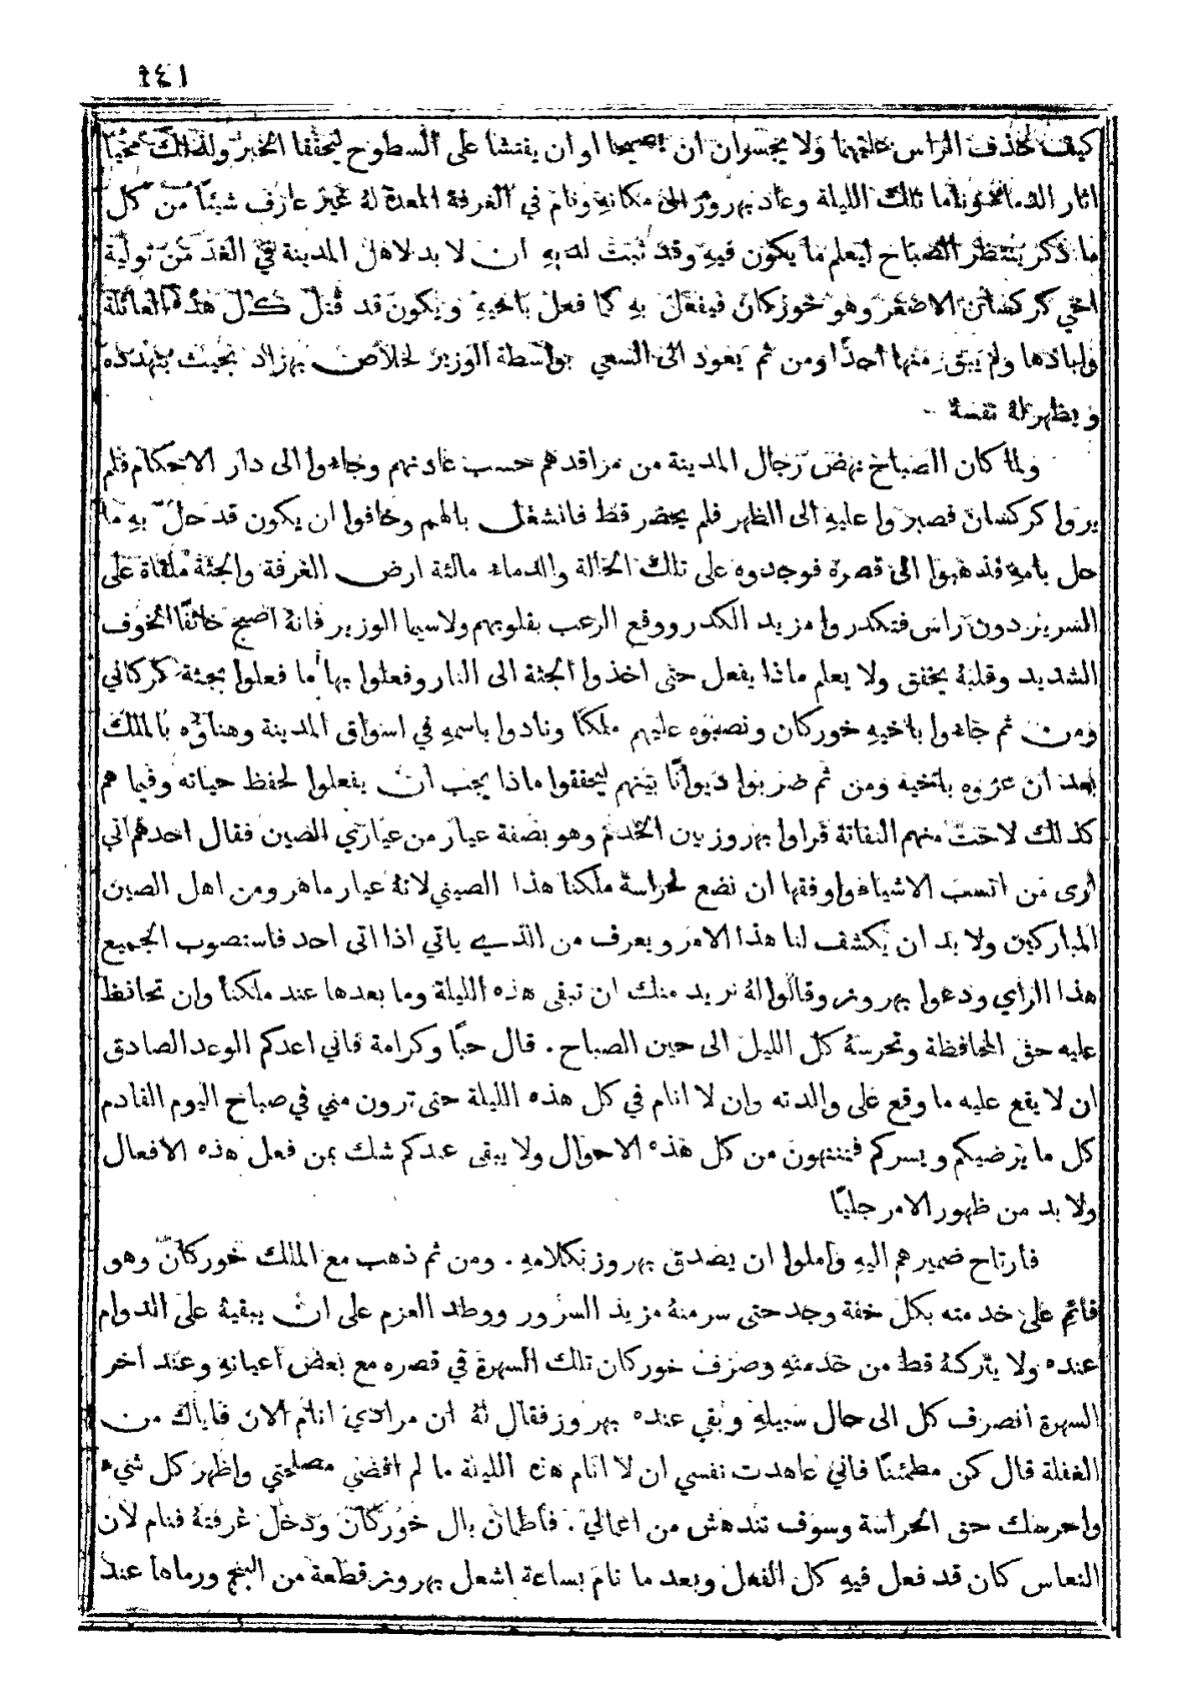 ٢٤١
كيف تحذف الراس عليهما ولا يجسران ان يصيحا او ان يفتشا على السطوح ليتحققا الخبر ولذلك محيا
اثار الدماء وناما تلك الليلة وعاد بهروز الى مكانهِ ونام في الغرفة المعدة لهُ غير عارف شيئًا من كل
ما ذكر ينتظر الصباح ليعلم ما يكون فيهِ وقد ثبت لديهِ ان لا بد لاهل المدينة في الغد من تولية
اخي كركسان الاصغر وهو خوركان فيفعل بهِ كما فعل باخيهِ ويكون قد قتل كل هذه العائلة
وابادها ولم يبقَ منها احدًا ومن ثم يعود الى السعي بواسطة الوزير لخلاص بهزاد بحيث يتهدده
ويظهر لهُ نفسهُ
ولما كان الصباح نهض رجال المدينة من مراقدهم حسب عادتهم وجاءوا الى دار الاحكام فلم
يروا كركسان فصبروا عليهِ الى الظهر فلم يحضر قط فانشغل بالهم وخافوا ان يكون قد حلَّ بهِ ما
حل بامهِ فذهبوا الى قصرة فوجدوه على تلك الحالة والدماء مالئة ارض الغرفة والجثة ملقاة على
السرير دون راس فتكدروا مزيد الكدر ووقع الرعب بقلوبهم ولاسيما الوزير فانهُ اصبح خائفًا الخوف
الشديد وقلبهُ يخفق ولا يعلم ماذا يفعل حتى اخذوا الجثة الى النار وفعلوا بها ما فعلوا بجثة كركاني
ومن ثم جاءوا باخيهِ خوركان ونصبوه عليهم ملكًا ونادوا باسمهِ في اسواق المدينة وهناؤه بالملك
بعد ان عزوه باخيه ومن ثم ضربوا ديوانًا بينهم ليحققوا ماذا يجب ان يفعلوا لحفظ حياته وفيما هم
كذلك لاحت منهم التفاتة فراوا بهروز بين الخدم وهو بصفة عيار من عياري الصين فقال احدهم اني
ارى من انسب الاشياء واوفقها ان نضع لحراسة ملكنا هذا الصيني لانهُ عيار ماهر ومن اهل الصين
المباركين ولا بد ان يكشف لنا هذا الامر ويعرف من الذي ياتي اذا اتى احد فاستصوب الجميع
هذا الراي ودعوا بهروز وقالوا لهُ نريد منك ان تبقى هذه الليلة وما بعدها عند ملكنا وان تحافظ
عليه حق المحافظة وتحرسهُ كل الليل الى حين الصباح . قال حبًا وكرامة فاني اعدكم الوعد الصادق
ان لا يقع عليه ما وقع على والدته وان لا انام في كل هذه الليلة حتى ترون مني في صباح اليوم القادم
كل ما يرضيكم ويسركم فتنتهون من كل هذه الاحوال ولا يبقى عندكم شك بمن فعل هذه الافعال
ولا بد من ظهور الامر جليًا
فارتاح ضميرهم اليهِ واملوا ان يصدق بهروز بكلامهِ . ومن ثم ذهب مع الملك خوركان وهو
قائم على خدمته بكل خفة وجد حتى سر منهُ مزيد السرور ووطد العزم على ان يبقيهُ على الدوام
عنده ولا يتركهُ قط من خدمتهِ وصرف خوركان تلك السهرة في قصره مع بعض اعيانهِ وعند اخر
السهرة انصرف كل الى حال سبيلهِ وبقي عنده بهروز فقال لهُ ان مرادي انام الان فاياك من
الغفلة قال كن مطمئنًا فاني عاهدت نفسي ان لا انام هذه الليلة ما لم اقضي مصلحتي واظهر كل شيء
واحرسك حق الحراسة وسوف تندهش من اعمالي . فاطمان بال خوركان ودخل غرفتهُ فنام لان
النعاس كان قد فعل فيهِ كل الفعل وبعد ما نام بساعة اشعل بهروز قطعة من البنج ورماها عند